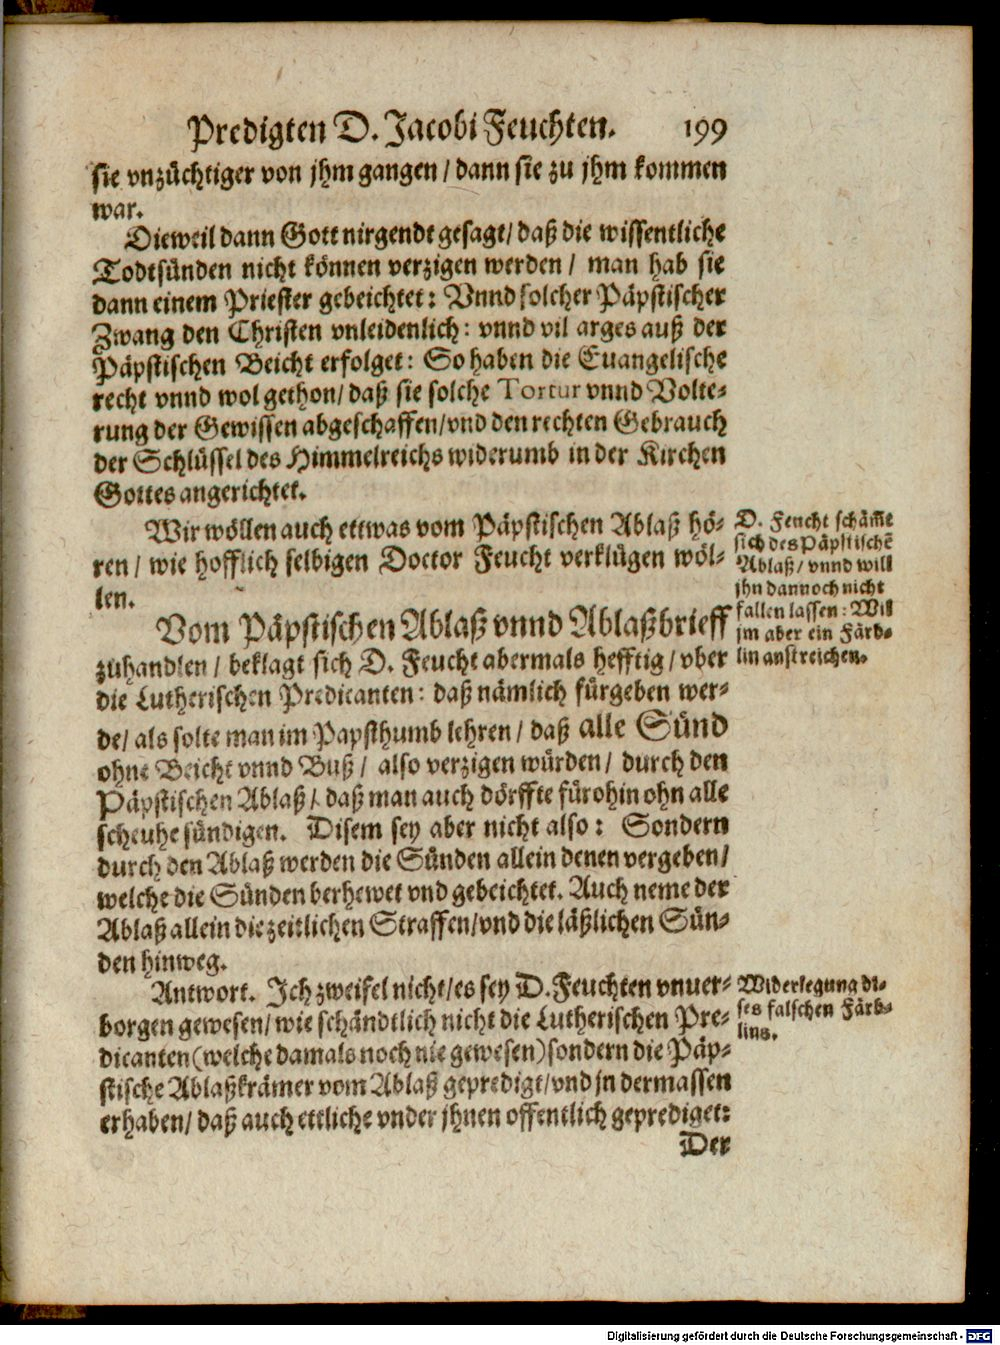 Predigten D. Jacobi Feuchten. 199
sie vnzüchtiger von jhm gangen / dann sie zu jhm kommen
war.
Dieweil dann Gott nirgendt gesagt / daß die wissentliche
Todtsünden nicht können verzigen werden / man hab sie
dann einem Priester gebeichtet: Vnnd solcher Päpstischer
Zwang den Christen vnleidenlich: vnnd vil arges auß der
Päpstischen Beicht erfolget: So haben die Euangelische
recht vnnd wol gethon / daß sie solche Tortur vnnd Volte-
rung der Gewissen abgeschaffen / vnd den rechten Gebrauch
der Schlüssel des Himmelreichs widerumb in der Kirchen
Gottes angerichtet.
Wir wöllen auch ettwas vom Päpstischen Ablaß hö-
ren / wie hofflich selbigen Doctor Feucht verklügen wöl-
len.
D. Feucht schäm̃t
sich des Päpstischẽ
Ablaß / vnnd will
jhn dannoch nicht
fallen lassen: Will
jm aber ein Färb-
lin anstreichen.
Vom Päpstischen Ablaß vnnd Ablaßbrieff
zuhandlen / beklagt sich D. Feucht abermals hefftig / vber
die Lutherischen Predicanten: daß nämlich fürgeben wer-
de / als solte man im Papsthumb lehren / daß alle Sünd
ohne Beicht vnnd Buß / also verzigen würden / durch den
Päpstischen Ablaß / daß man auch dörffte fürohin ohn alle
scheuhe sündigen. Disem sey aber nicht also: Sondern
durch den Ablaß werden die Sünden allein denen vergeben /
welche die Sünden berhewet vnd gebeichtet. Auch neme der
Ablaß allein die zeitlichen Straffen / vnd die läßlichen Sün-
den hinweg.
Antwort. Ich zweifel nicht / es sey D. Feuchten vnuer-
borgen gewesen / wie schändtlich nicht die Lutherischen Pre-
dicanten (welche damals noch nie gewesen) sondern die Päp-
stische Ablaßkrämer vom Ablaß gepredigt / vnd jn dermassen
erhaben / daß auch ettliche vnder jhnen offentlich geprediget:
Widerlegung di-
ses falschen Färb-
lins.
Der
Digitalisierung gefördert durch die Deutsche Forschungsgemeinschaft - DFG